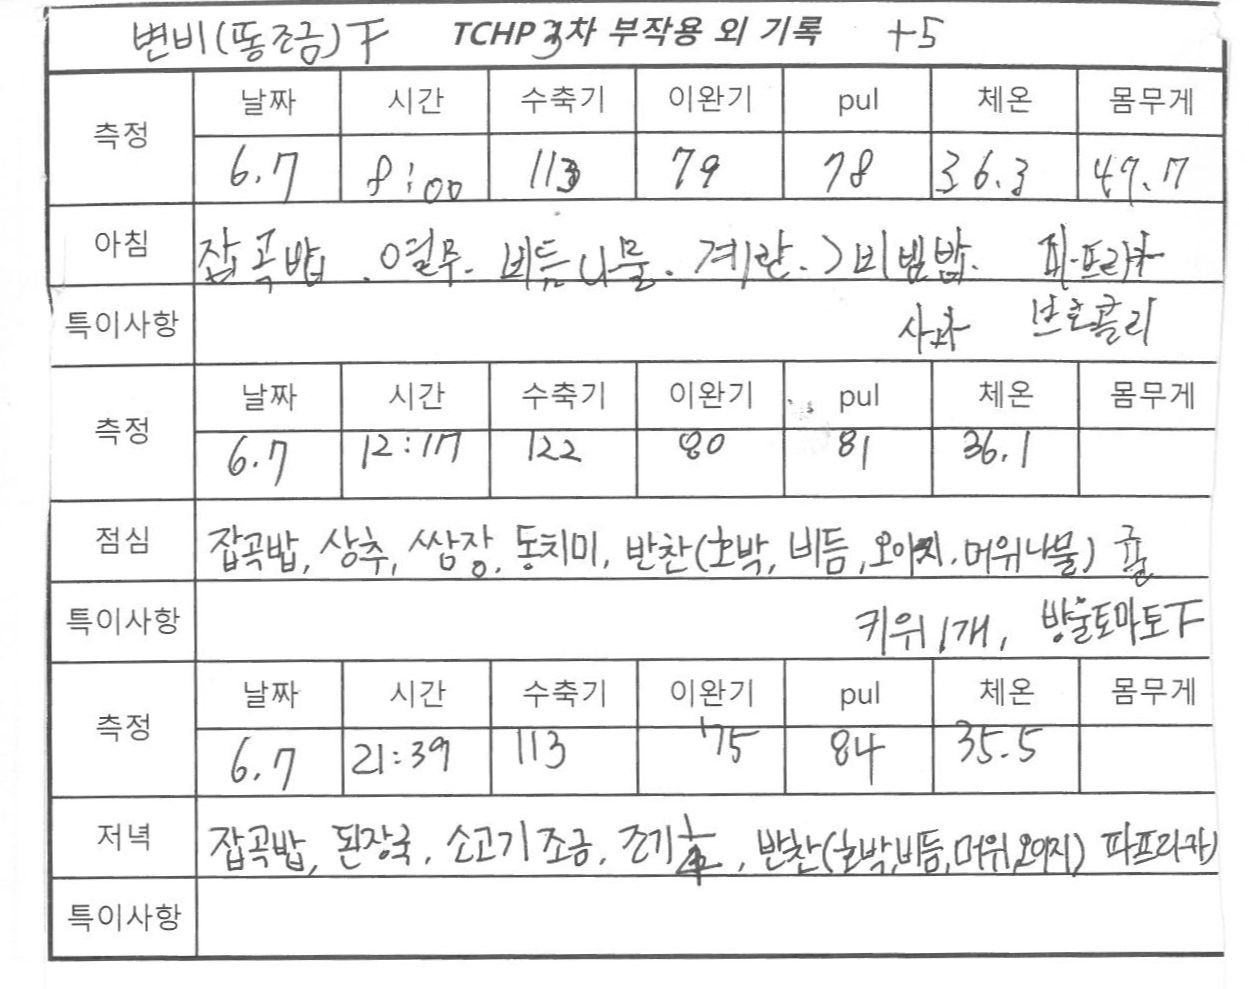 변비(똥조금)下 TCHP 3차 부작용 외 기록 +5
측정 날짜 시간 수축기 이완기 pul 체온 몸무게
6.7 8:00 113 79 78 36.3 47.7
아침 잡곡밥. 열무. 비듬나물. 계란. > 비빔밥. 파프리카
특이사항 사과 브로콜리
측정 날짜 시간 수축기 이완기 pul 체온 몸무게
6.7 12:17 122 80 81 36.1
점심 잡곡밥, 상추, 쌈장, 동치미, 반찬(호박, 비듬, 오이지, 머위나물) 귤
특이사항 키위 1개, 방울토마토下
측정 날짜 시간 수축기 이완기 pul 체온 몸무게
6.7 21:39 113 75 84 35.5
저녁 잡곡밥, 된장국, 소고기조금, 조기, 반찬(호박,비듬,머위,오이지) 파프리카)
특이사항